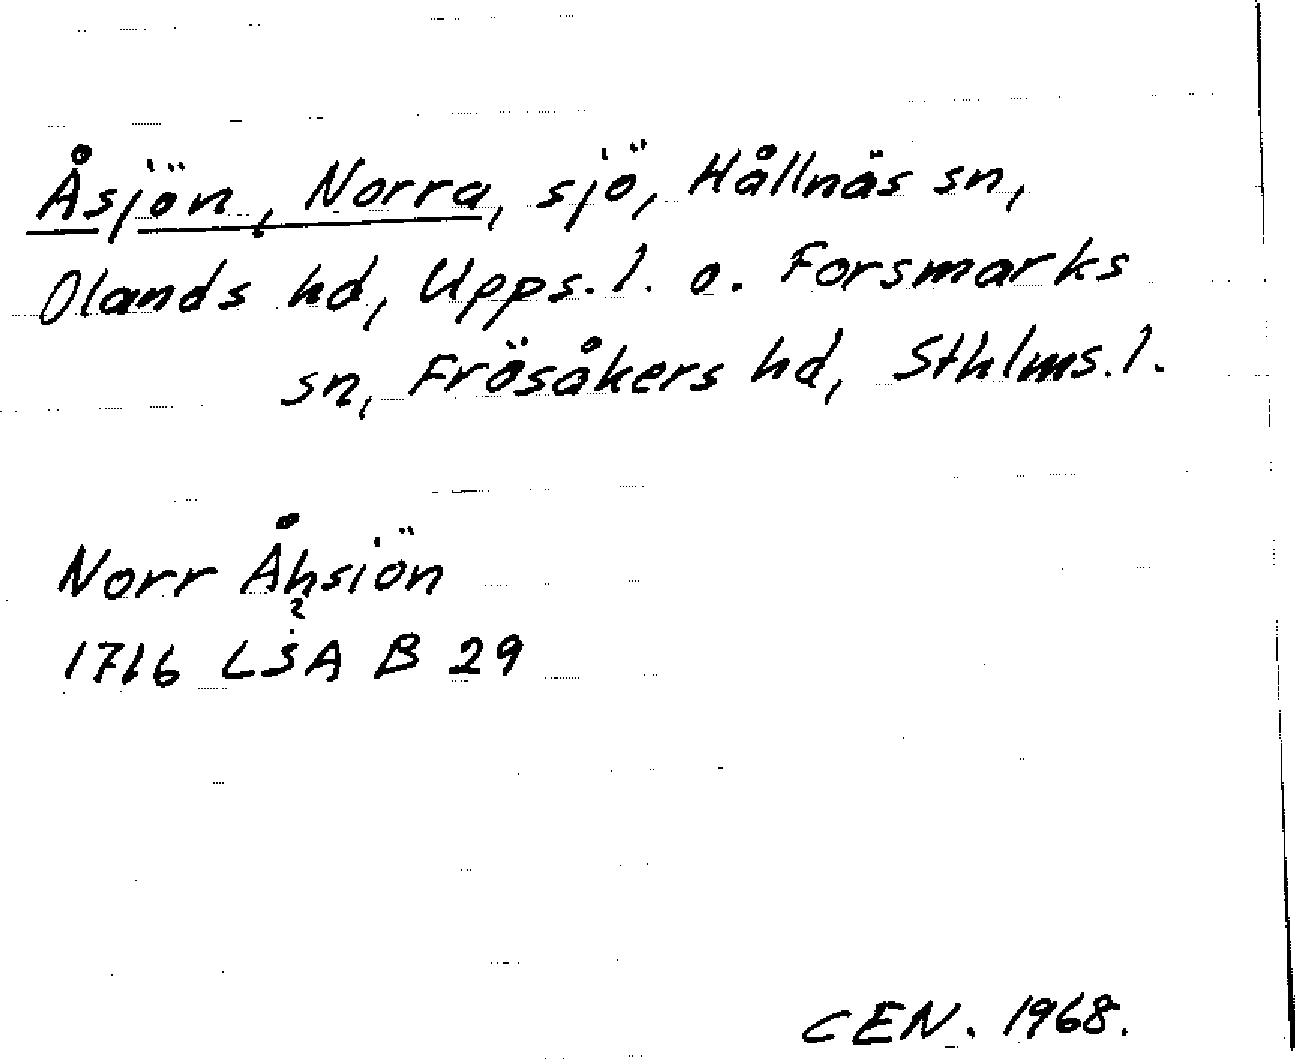 Åsjön, Norra, sjö, Hållnäs sn,
Olands hd, Upps. l. o. Forsmarks
sn, Frösåkers hd, Sthlms. l.
Norr Åhsiön
?
1716 LSA B 29
CEN. 1968.